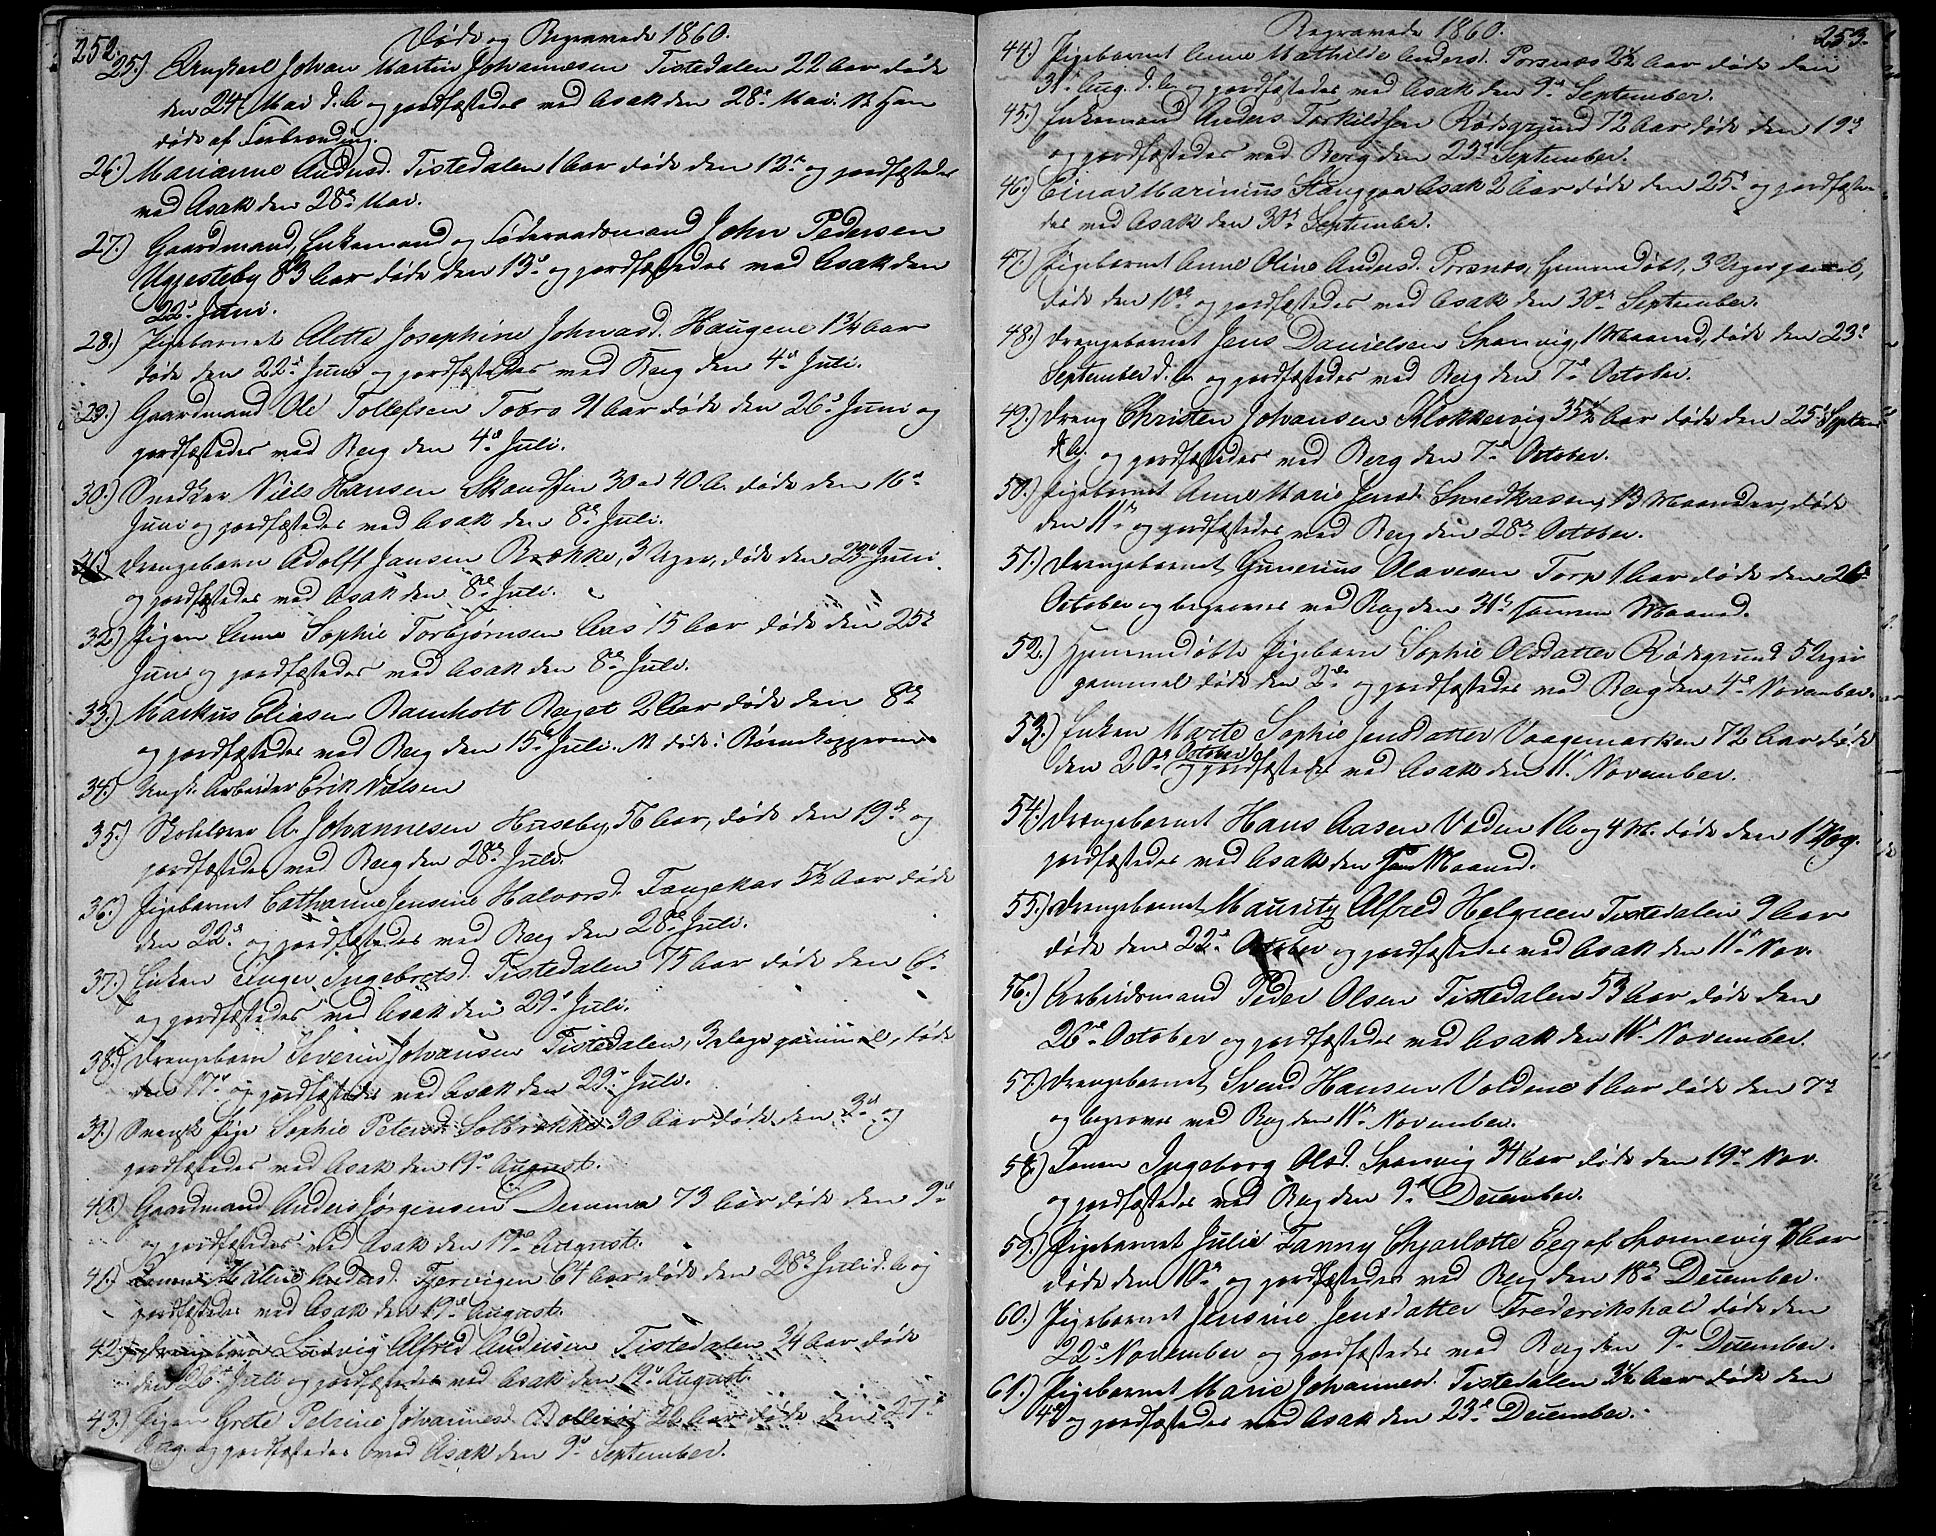 252.
Døde og Begravede 1860.
25.) Brugkarl Johan Martin Johannesen Tistedalen 22 Aar døde
den 24 Mai d. A og jordfæstedes ved Asak den 28de Mai. NB Han
døde af Forbrænding.
26.) Marianne Andersd. Tistedalen 1 Aar døde den 12te og jordfæstedes
ved Asak den 28de Mai.
27.) Gaardmand, Enkemand og Føderaadsmand John Pedersen
Uggesteby 83 Aar døde den 13de og jordfæstedes ved Asak den
22de Juni.
28.) Pigebarnet Alette Josephine Johnasd. Haugene 1¾ Aar
døde den 22de Juni og jordfæstedes ved Berg den 4de Juli.
29.) Gaardmand Ole Tollefsen Tobro 91 Aar døde den 26de Juni og
jordfæstedes ved Berg den 4de Juli.
30.) Snedker Niels Hansen 30 a 40 A. døde den 16de
Juni og jordfæstedes ved Asak den 8de Juli.
31.) Drengebarn Adolff Jansen Brække, 3 Uger, døde den 23de Juni
og jordfæstedes ved Asak den 8de Juli.
32.) Pigen Anne Sophie Torbjørnsen Aas 15 Aar døde den 25de
Juni og jordfæstedes ved Asak den 8de Juli.
33.) Markus Eliasen Ramholt 2 Aar døde den 8de
og jordfæstedes ved Berg den 15de Juli. NB døde i Børnekopperne
34.) Ungk. Arbeider Erik Nielsen
35.) Skolelærer A. Johannesen Huseby, 56 Aar, døde den 19de og
jordfæstedes ved Berg den 28de Juli.
36.) Pigebarnet Cathrine Jensine Halvorsd. Fangekas 5½ Aar døde
den 22de og jordfæstedes ved Berg den 28de Juli.
37.) Enken Inger Ingebretsd. Tistedalen 75 Aar døde den 6te
og jordfæstedes ved Asak den 29de Juli.
38.) Drengebarn Severin Johansen Tistedalen, 3 Dage gammel, døde
den 17de og jordfæstedes ved Asak den 29de Juli.
39.) Svensk Pige Sophie Petersd. Solbrække 30 Aar døde den 3de og
jordfæstedes ved Asak den 19de August.
40.) Gaardmand Anders Jørgensen Demma 73 Aar døde den 9de
og jordfæstedes ved Asak den 19de August.
41.) Konen Maline Andersd. 64 Aar døde den 28de Juli d. A og
jordfæstedes ved Asak den 19de August.
42.) Drengebarn Ludvig Alfred Andersen Tistedalen ¾ Aar døde
den 26de Juli og jordfæstedes ved Asak den 19de August.
43.) Pigen Grete Petrine Johannesd. 22 Aar døde den 27de
Aug. og jordfæstedes ved Asak den 9de September.
Begravede 1860.
253.
44.) Pigebarnet Anne Mathilde Andersd. Porsnæs 2½ Aar døde den
31te Aug. d. A. og jordfæstedes ved Asak den 9de September.
45.) Enkemand Anders Torkildsen Rødsgrund 72 Aar døde den 19de
og jordfæstedes ved Berg den 23de September.
46.) Einar Marinius Asak 2 Aar døde den 25de og jordfæste-
des ved Asak den 30te September.
47.) Pigebarnet Anne Oline Andersd. Porsnæs, hjemmedøbt, 3 Uger gammel,
døde den 10de og jordfæstedes ved Asak den 30te September.
48.) Drengebarnet Jens Danielsen Sponvig, 1 Maaned, døde den 23de
September d. A. og jordfæstedes ved Berg den 7de October.
49.) Dreng Christen Johansen Klokkervig døde den 25de Septem
d. A. og jordfæstedes ved Berg den 7de October.
50.) Pigebarnet Anne Marie Jensd. 13 Maaneder, døde
den 11te og jordfæstedes ved Berg den 28de October.
51.) Drengebarnet Gunerius Olavesen Torp 1 Aar døde den 26de
October og begraves ved Berg den 31te samme Maaned.
52.) Hjemmedøbte Pigebarn Sophie Olsdatter Rødsgrund 5 Uger
gammel døde den 2de og jordfæstedes ved Berg den 4de November.
53.) Enken Marte Sophie Jensdatter Vaagemarken 72 Aar døde
den 20de October og jordfæstedes ved Asak den 11te November.
54.) Drengebarnet Hans Aasen Veden 1 A og 4 M. døde den 1 og
jordfæstedes ved Asak den Maaned.
55.) Drengebarnet Mauritz Alfred Helgreen Tistedalen 9 Aar
døde den 22de October og jordfæstedes ved Asak den 11te Nov.
56.) Arbeidsmand Peder Olsen Tistedalen 53 Aar døde den
26de October og jordfæstedes ved Asak den 11te November.
57.) Drengebarnet Svend Hansen Voldene 1 Aar døde den 7de
og begraves ved Berg den 11te November.
58.) Konen Ingeborg Olsd. Sponvig 34 Aar døde den 19de Nov.
og jordfæstedes ved Berg den 9de December.
59.) Pigebarnet Julie Fanny Chjarlotte Eeg af Sponnevig Aar
døde den 10de og jordfæstedes ved Berg den 18de December.
60.) Pigebarnet Jensine Jensdatter Frederikshald døde den
22de November og jordfæstedes ved Berg den 9de December.
61.) Pigebarnet Marie Johannesd. Tistedalen Aar døde den
4de og jordfæstedes ved Asak den 23de December.